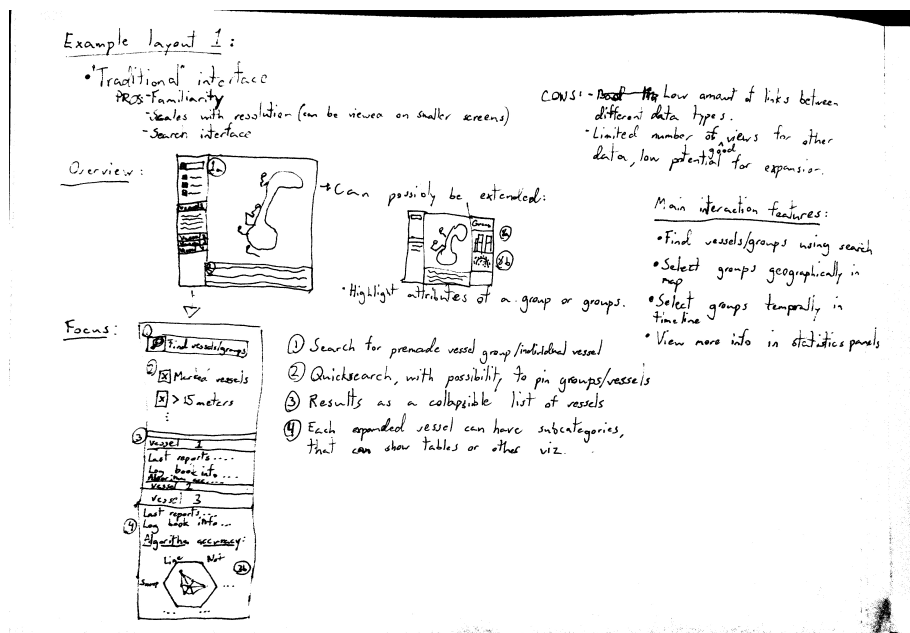 Example layout 1:
• "Traditional" interface
PROS: - Familiarity
- Scales with resolution (can be viewed on smaller screens)
- Search interface
CONS: - Low amount of links between
different data types.
- Limited number of good views for other
data, low potential for expansion.
Overview:
1a
→ Can possibly be extended:
• Highlight attributes of a group or groups.
Main interaction features:
• Find vessels/groups using search
• Select groups geographically in
map
• Select groups temporally in
timeline
• View more info in statistics panels
Focus:
1
Find vessels/groups
2
x Marked vessels
x > 15 meters
3
vessel 1
Last reports ....
Log book info ...
Algorithm acc....
vessel 2
vessel 3
Last reports...
4
Log book info...
Algorithm accuracy:
Line
Net
3b
① Search for premade vessel group/individual vessel
② Quicksearch, with possibility to pin groups/vessels
③ Results as a collapsible list of vessels
④ Each expanded vessel can have subcategories,
that can show tables or other viz.